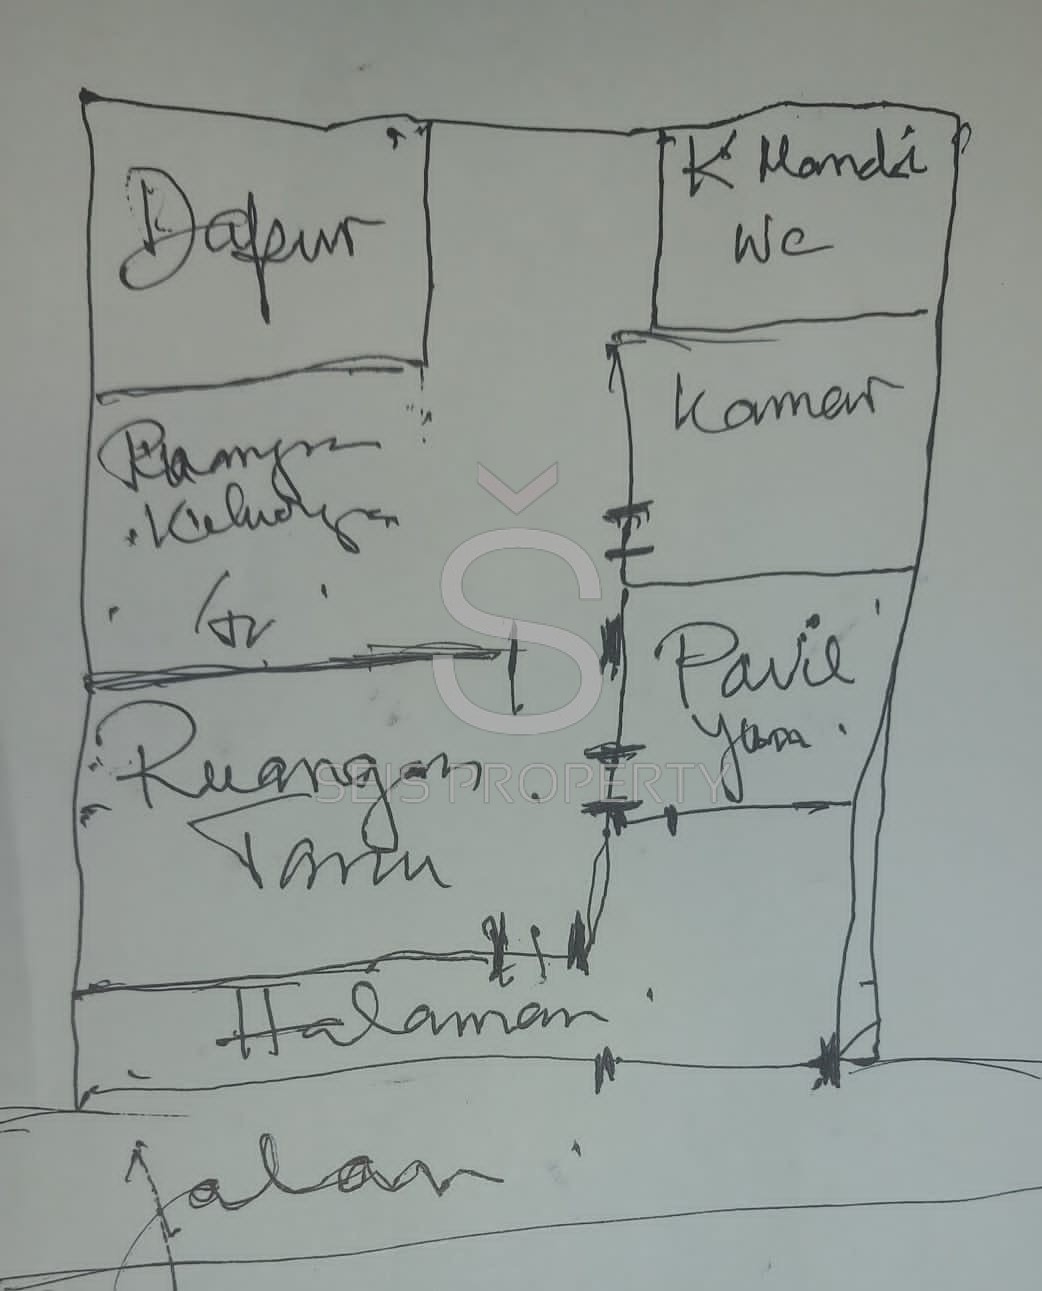 Dapur
K Mandi
WC
Kamar
Ruangan
Keluarga
Pavil
yun
Ruangan
Tamu
SEIS PROPERTY
Halaman
Jalan